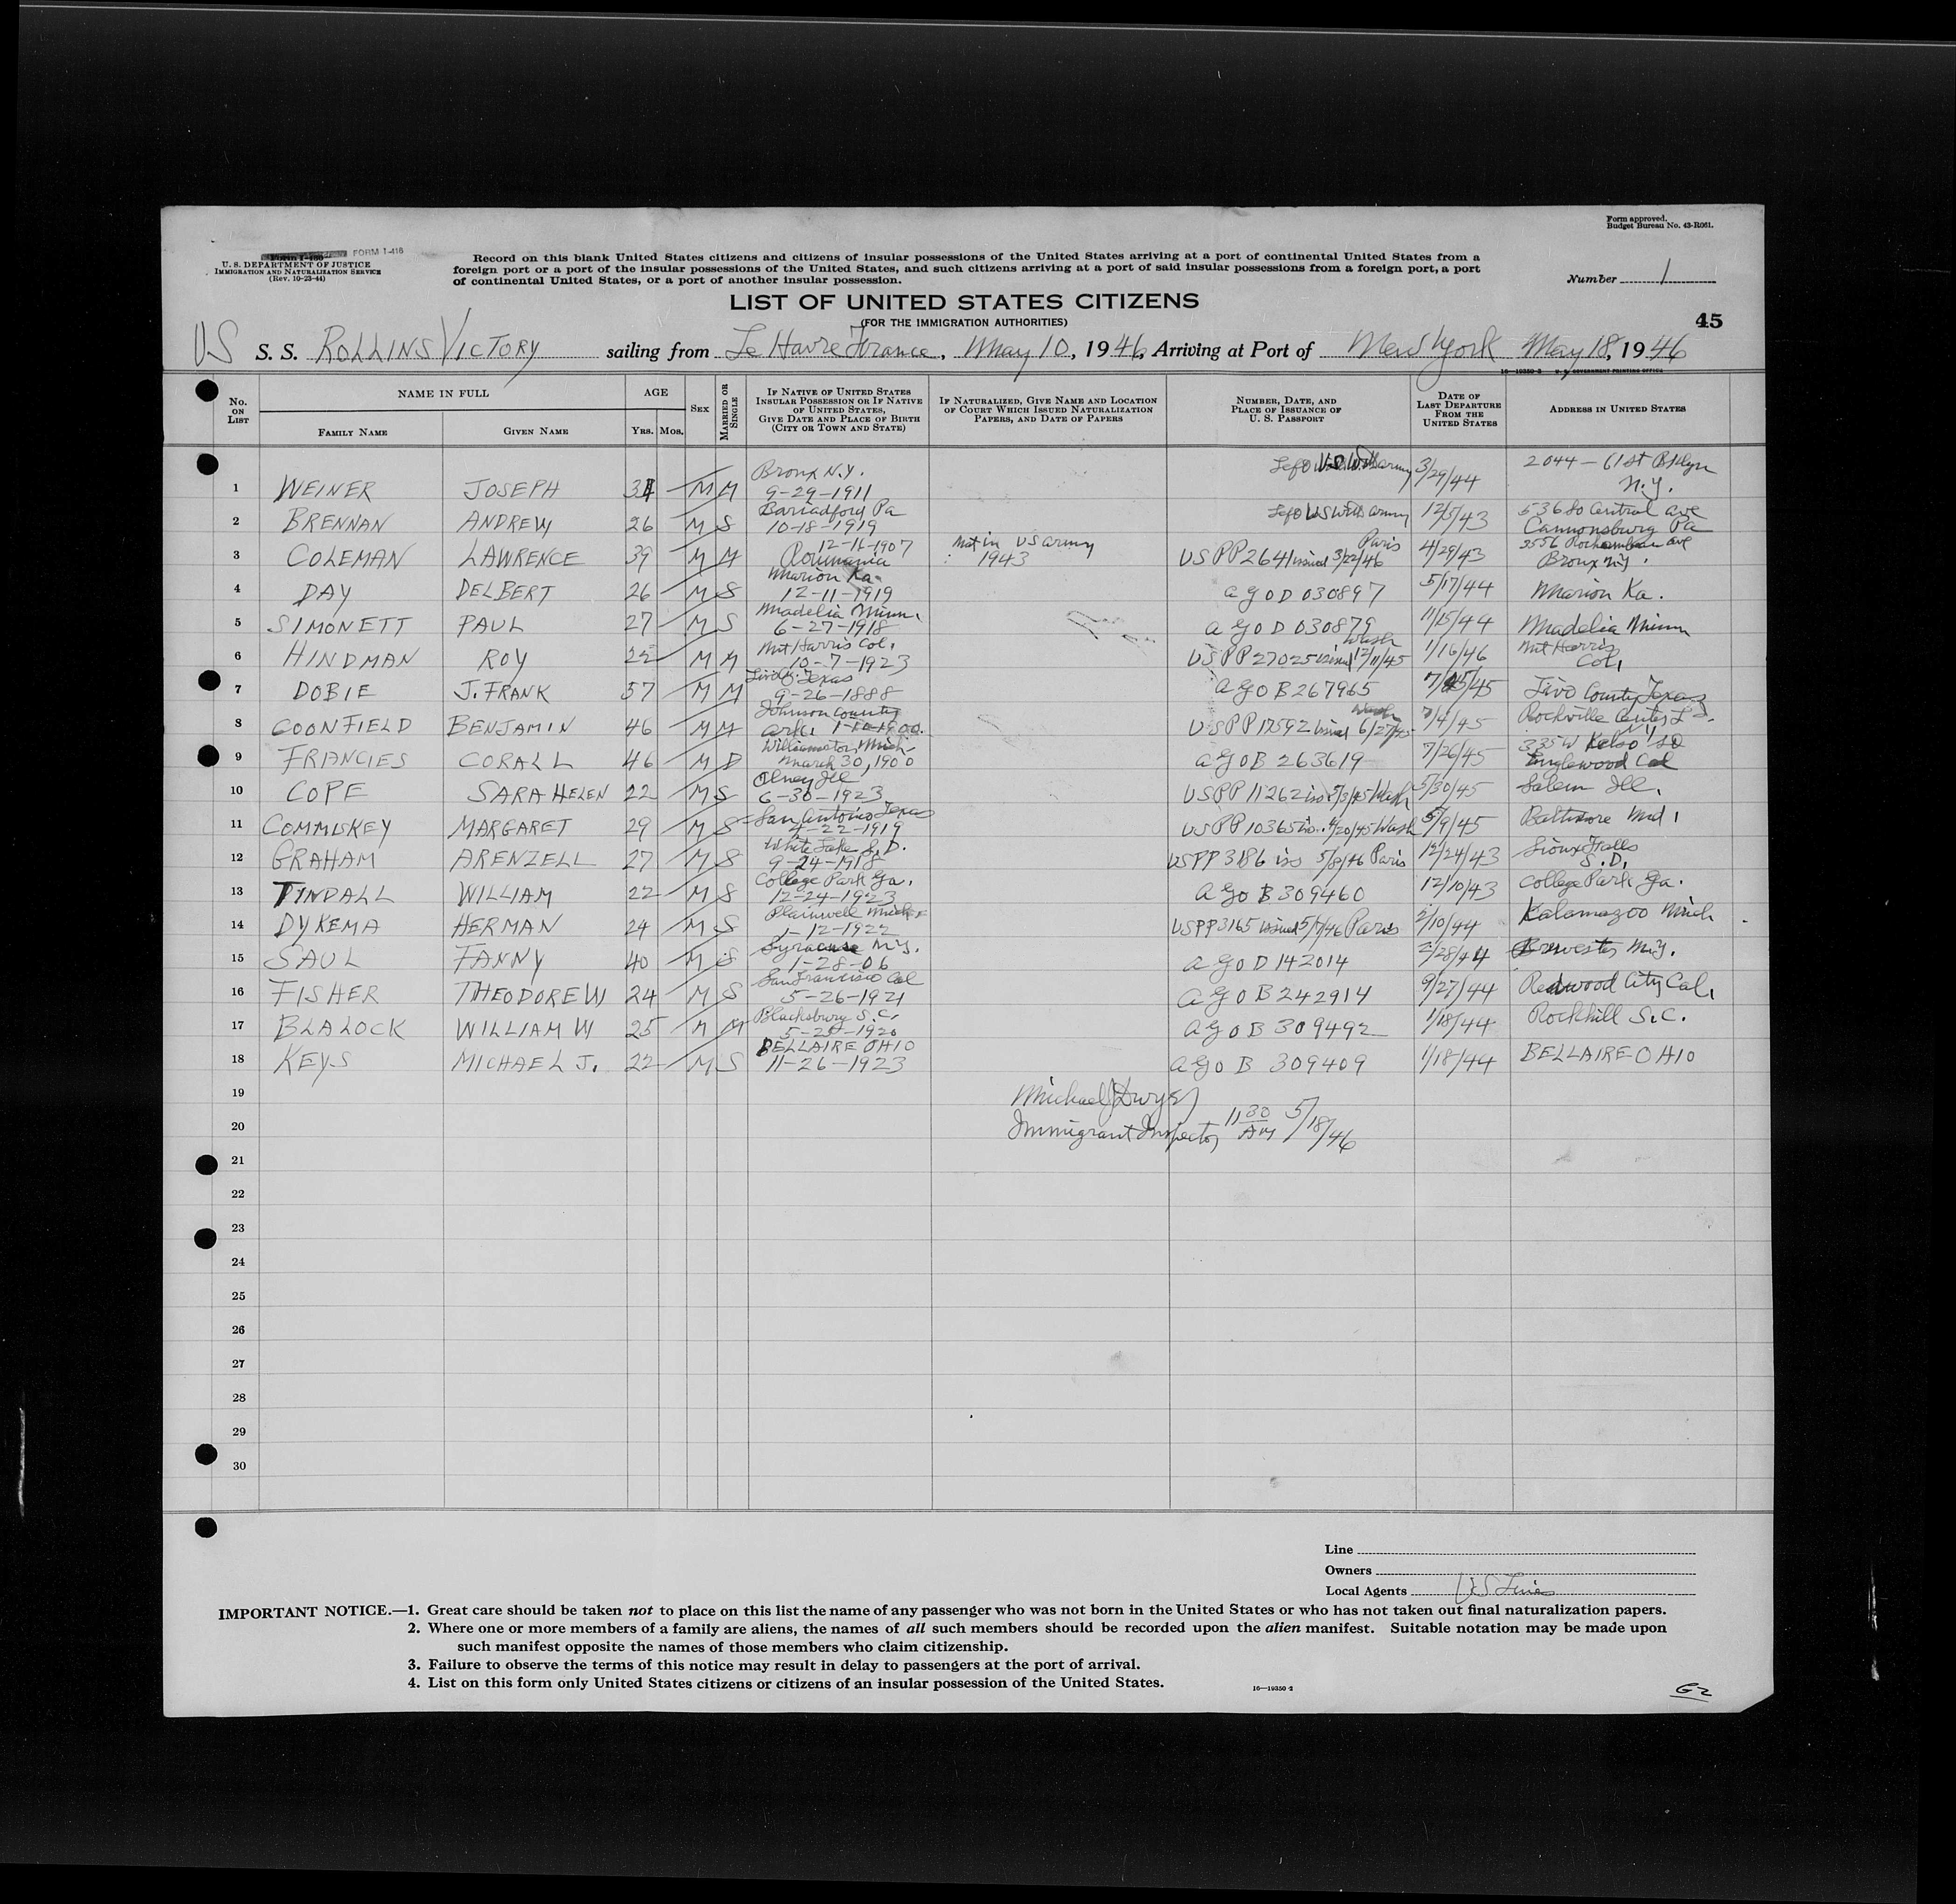 Form approved.
Budget Bureau No. 43-R061.
FORM I-416
U. S. DEPARTMENT OF JUSTICE
IMMIGRATION AND NATURALIZATION SERVICE
(Rev. 10-23-44)
Record on this blank United States citizens and citizens of insular possessions of the United States arriving at a port of continental United States from a
foreign port or a port of the insular possessions of the United States, and such citizens arriving at a port of said insular possessions from a foreign port, a port
of continental United States, or a port of another insular possession.
Number 1
LIST OF UNITED STATES CITIZENS
(FOR THE IMMIGRATION AUTHORITIES)
45
US S. S. ROLLINS VICTORY sailing from Le Havre France, May 10, 1946, Arriving at Port of New York May 18, 1946
16—19350-2 U. S. GOVERNMENT PRINTING OFFICE
No. ON LIST
NAME IN FULL
FAMILY NAME GIVEN NAME
AGE
YRS. MOS.
SEX
MARRIED OR SINGLE
IF NATIVE OF UNITED STATES INSULAR POSSESSION OR IF NATIVE OF UNITED STATES, GIVE DATE AND PLACE OF BIRTH (CITY OR TOWN AND STATE)
IF NATURALIZED, GIVE NAME AND LOCATION OF COURT WHICH ISSUED NATURALIZATION PAPERS, AND DATE OF PAPERS
NUMBER, DATE, AND PLACE OF ISSUANCE OF U. S. PASSPORT
DATE OF LAST DEPARTURE FROM THE UNITED STATES
ADDRESS IN UNITED STATES
1 WEINER JOSEPH 34 M M Bronx N.Y. 9-29-1911 Left US With army 3/29/44 2044 - 61 St Bklyn N.Y.
2 BRENNAN ANDREW 26 M S Pa 10-18-1919 Left US With army 12/5/43 536 So Central ave Cannonsburg Pa
3 COLEMAN LAWRENCE 39 M M 12-11-1907 Roumania Nat in US army 1943 US PP 2641 issued 3/22/46 Paris 4/29/43 Rochambeau ave Bronx N.Y.
4 DAY DELBERT 26 M S Marion Ka. 12-11-1919 AGO D 030897 5/17/44 Marion Ka.
5 SIMONETT PAUL 27 M S Madelia Minn. 6-27-1918 AGO D 030879 11/15/44 Madelia Minn
6 HINDMAN ROY 22 M M Mt Harris Col. 10-7-1923 US PP 27025 issued 12/11/45 Wash 1/16/46 Mt Harris Col.
7 DOBIE J. FRANK 57 M M Texas 9-26-1888 AGO B 267965 7/25/45 Livo County Texas
8 COONFIELD BENJAMIN 46 M M Johnson County Ark. 1-10-1900 US PP 17592 issued 6/27/45 Wash 7/4/45 Rockville Center L I.
9 FRANCIES CORALL 46 M D Williamston Mich March 30, 1900 AGO B 263619 7/26/45 335 W Kelso St Inglewood Cal
10 COPE SARA HELEN 22 M S Olney Ill 6-30-1923 US PP 11262 iss 5/3/45 Wash 5/30/45 Salem Ill.
11 COMMISKEY MARGARET 29 M S San Antonio Texas 4-22-1919 US PP 10365 iss. 4/20/45 Wash 5/9/45 Baltimore Md.
12 GRAHAM ARENZELL 27 M S White Lake S.D. 9-24-1918 US PP 3186 iss 5/8/46 Paris 12/24/43 Sioux Falls S.D.
13 TINDALL WILLIAM 22 M S College Park Ga. 12-24-1923 AGO B 309460 12/10/43 College Park Ga.
14 DYKEMA HERMAN 24 M S Plainwell Mich 1-12-1922 US PP 3165 issued 5/7/46 Paris 2/10/44 Kalamazoo Mich
15 SAUL FANNY 40 M S Syracuse N.Y. 1-28-06 AGO D 142014 2/28/44 Brewster N.Y.
16 FISHER THEODORE W 24 M S San Francisco Cal 5-26-1921 AGO B 242914 9/27/44 Redwood City Cal.
17 BLALOCK WILLIAM W 25 M M Blacksburg S.C. 5-20-1920 AGO B 309492 1/18/44 Rockhill S.C.
18 KEYS MICHAEL J. 22 M S BELLAIRE OHIO 11-26-1923 AGO B 309409 1/18/44 BELLAIRE OHIO
19 Michael J Dwyer
20 Immigrant Inspector 11 30 AM 5/18/46
21
22
23
24
25
26
27
28
29
30
Line
Owners
Local Agents US Lines
IMPORTANT NOTICE.—1. Great care should be taken not to place on this list the name of any passenger who was not born in the United States or who has not taken out final naturalization papers.
2. Where one or more members of a family are aliens, the names of all such members should be recorded upon the alien manifest. Suitable notation may be made upon
such manifest opposite the names of those members who claim citizenship.
3. Failure to observe the terms of this notice may result in delay to passengers at the port of arrival.
4. List on this form only United States citizens or citizens of an insular possession of the United States.
16—19350-2